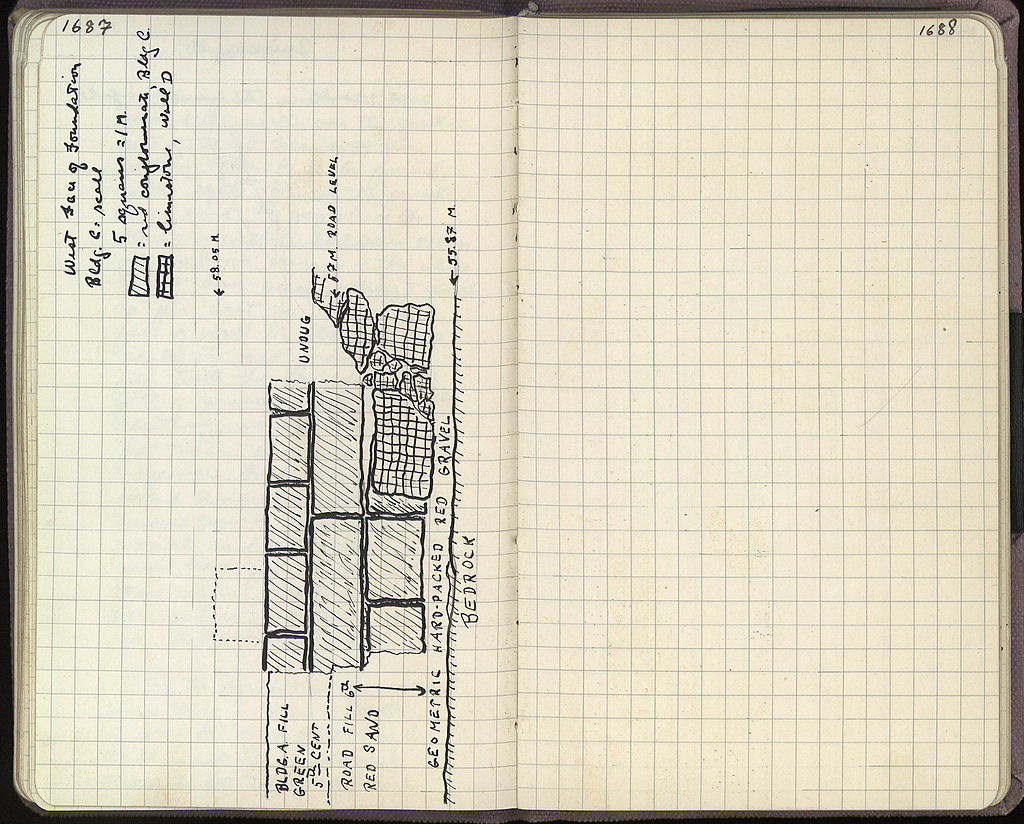 1687
West Face of Foundation
Bldg. C: scale
5 squares = 1 M.
= red conglomerate, Bldg C.
= limestone, Wall D
← 58.05 M.
UNDUG
← 57 M. ROAD LEVEL
← 55.87 M.
BLDG. A. FILL
GREEN
5th CENT
ROAD FILL 6th
RED SAND
GEOMETRIC HARD-PACKED RED GRAVEL
BEDROCK
1688